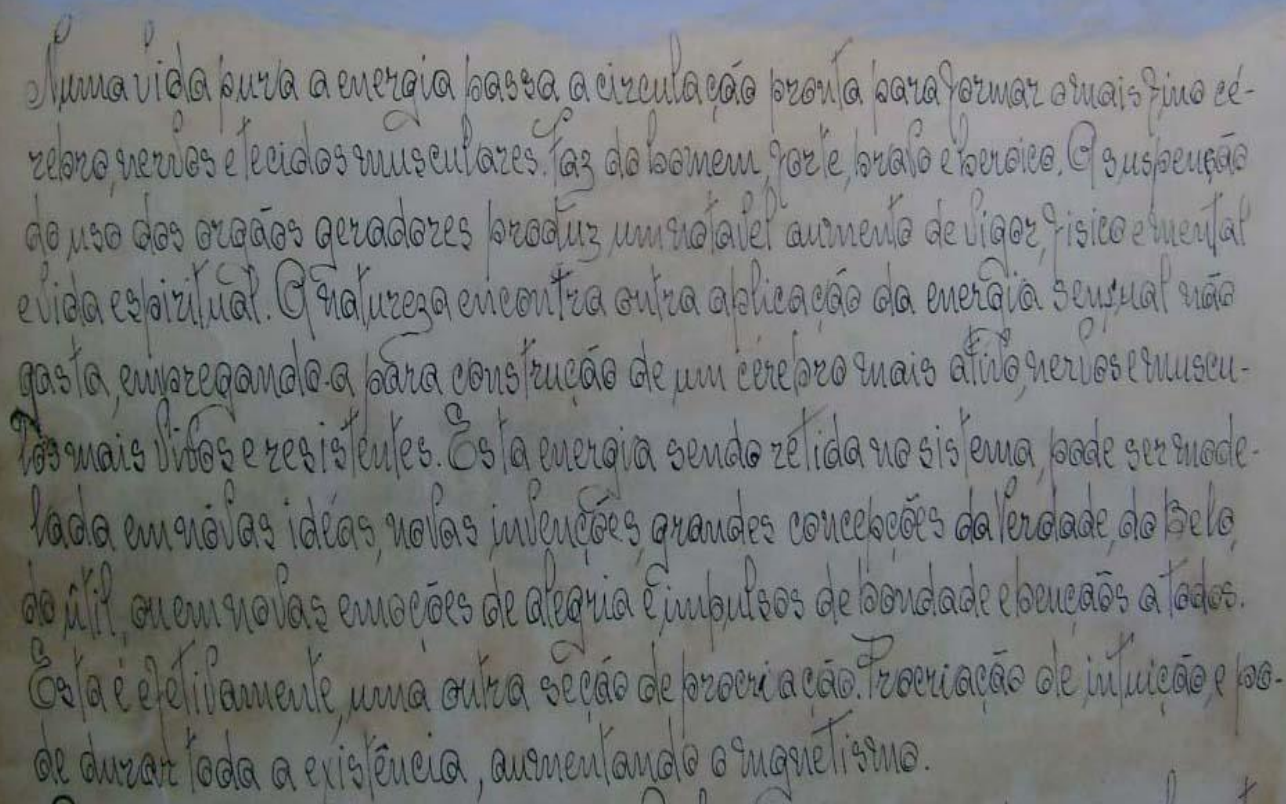 Numa vida pura a energia passa a circulação pronta para formar o mais fino cé-
rebro, nervos e tecidos musculares. Faz do homem, forte, bravo e heroico. A suspenção
do uso dos orgãos geradores produz, um notavel aumento de vigor, fisico e mental
e vida espiritual. A natureza encontra outra aplicação da energia sensual não
gasta, empregando-a para construção de um cérebro mais ativo, nervos e muscu-
los mais vivos e resistentes. Esta energia sendo retida no sistema, pode ser mode-
lada em nóvas idéas, novas invenções, grandes concepções da Verdade, do Belo,
do útil, ou em novas emoções de alegria e impulsos de bondade e bençãos a todos.
Esta é efetivamente, uma outra seção de procriação. Procriação de intuição, e po-
de durar toda a existência, aumentando o magnetismo.